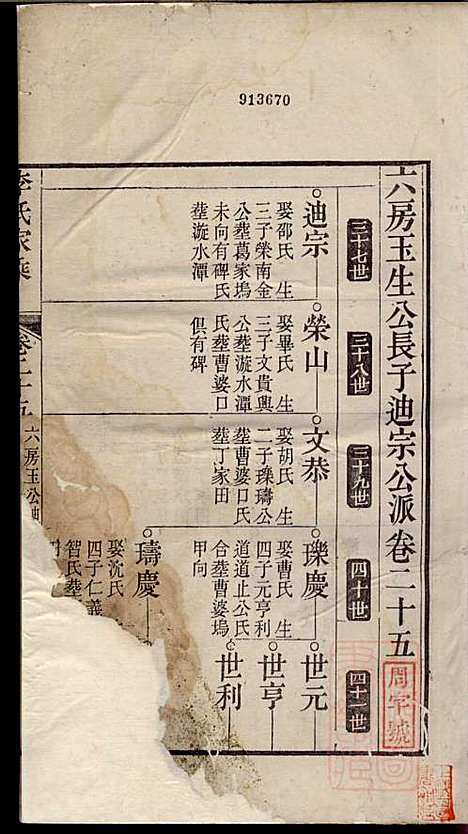 913670
六房玉生公長子迪宗公派卷二十五
三十七世
三十八世
三十九世
四十世
四十一世
周字號
迪宗
娶邵氏 生
三子榮南金
公塟葛家塢
未向有碑氏
塟漩水潭
榮山
娶畢氏 生
三子文貴興
公塟漩水潭
氏塟曹婆口
俱有碑
文恭
娶胡氏 生
二子瓅璹公
塟曹婆口氏
塟丁家田
瓅慶
娶曹氏 生
四子元亨利
道道止公氏
合塟曹婆塢
甲向
世元
世亨
世利
璹慶
娶沈氏
四子仁義
智氏塟
李氏家乘
卷二十五
六房玉公迪